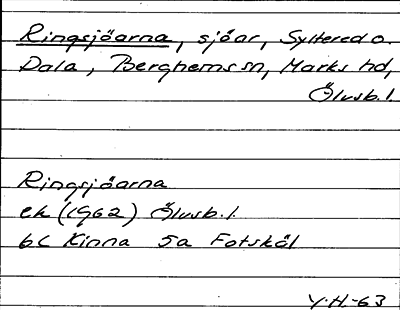 Ringsjöarna, sjöar, Syltered o.
Dala, Berghems sn, Marks hd,
Älvsb.l.
Ringsjöarna
ek (1962) Älvsb.l.
6c Kinna 5a Fotskäl
Y.H.-63